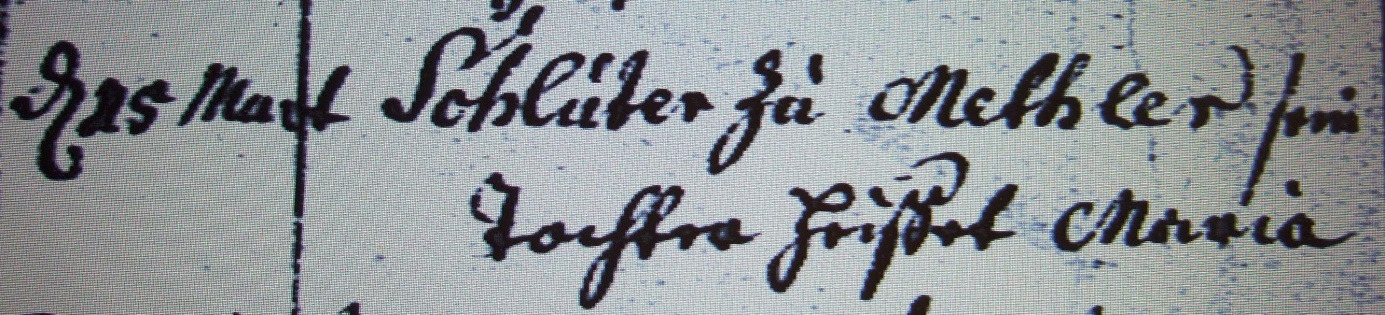 25 Mart Schlüter zu Methler sein
Tochter heißet Maria